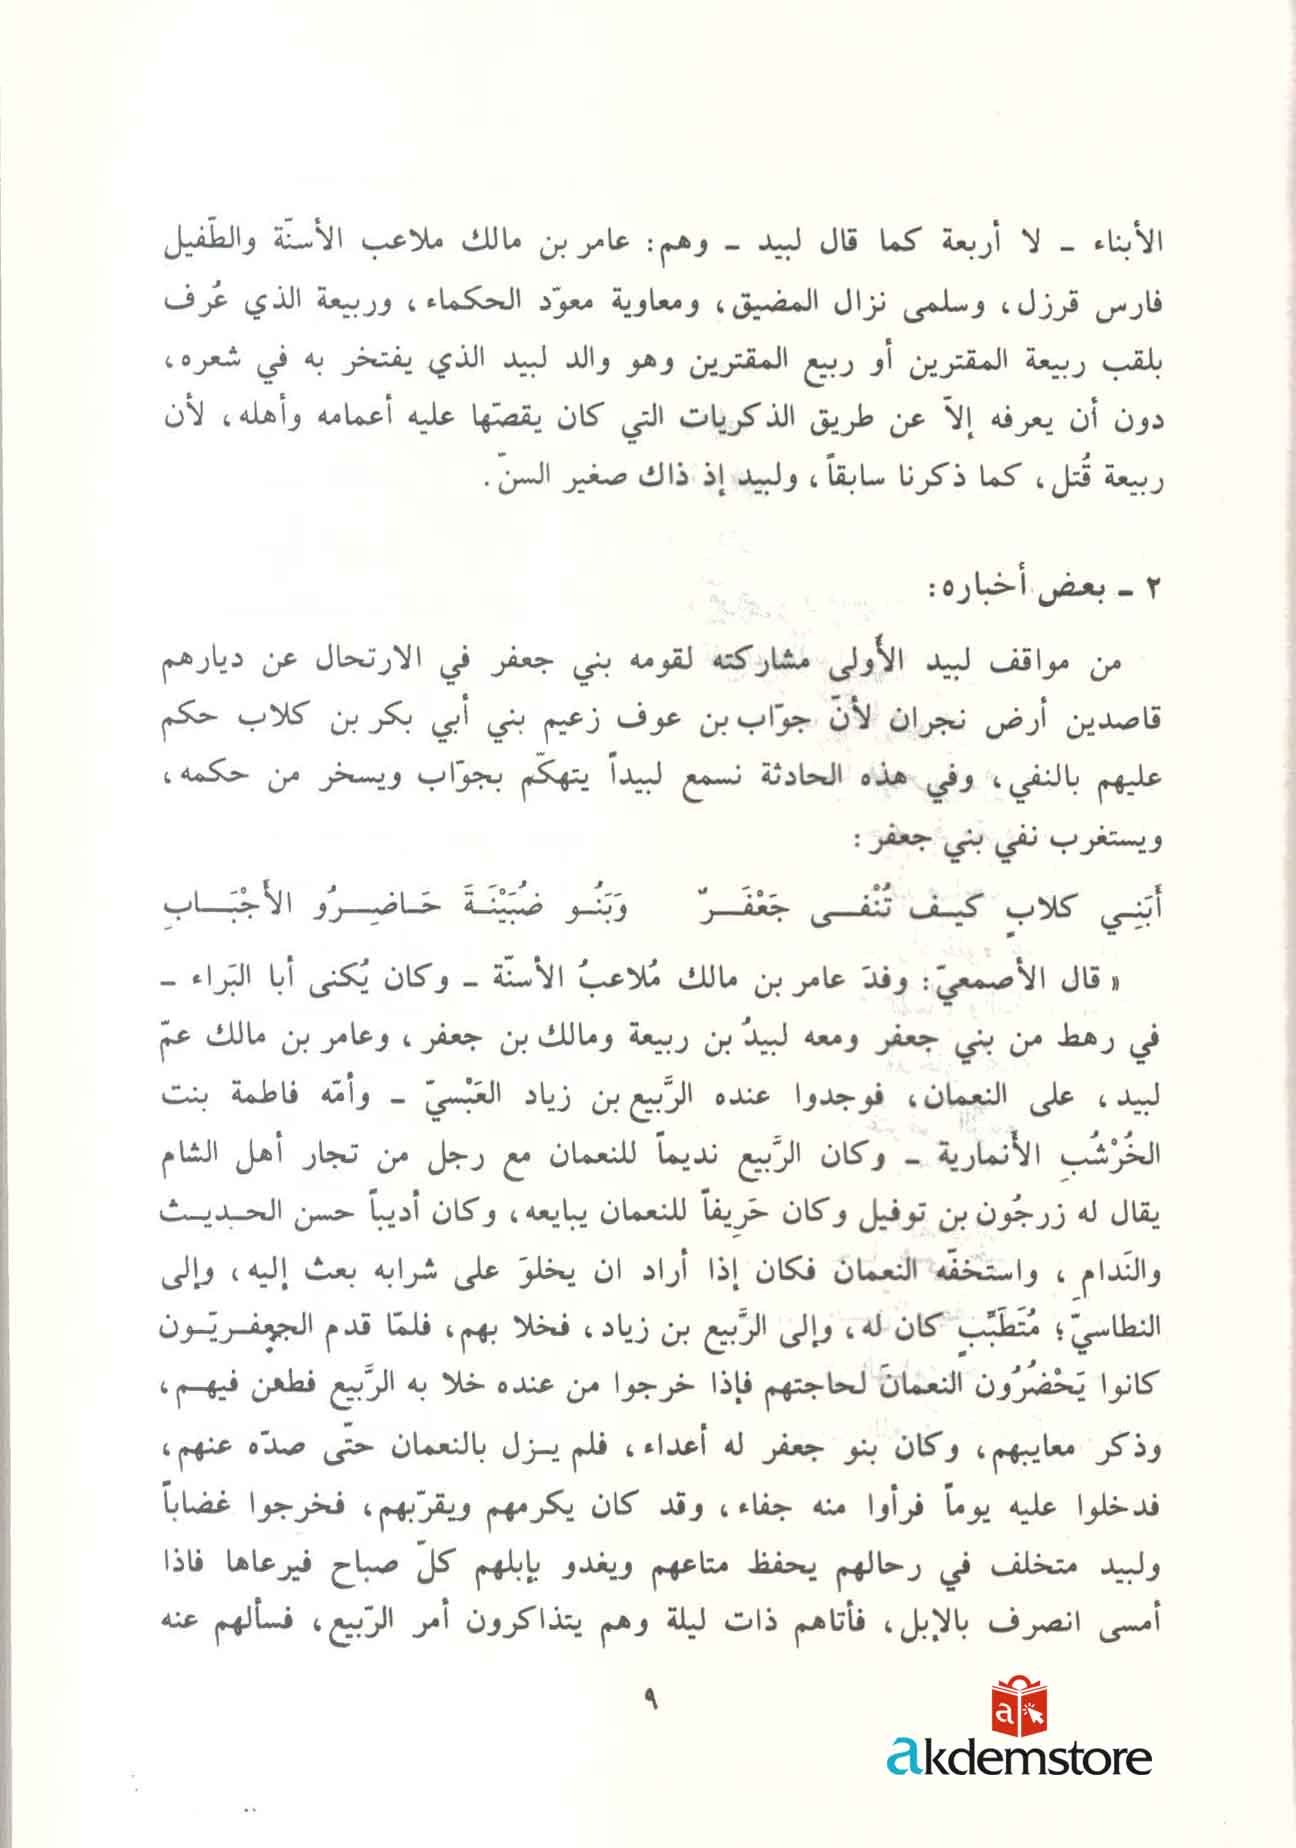 الأبناء ـ لا أربعة كما قال لبيد ـ وهم: عامر بن مالك ملاعب الأسنّة والطّفيل
فارس قرزل، وسلمى نزال المضيق، ومعاوية معوّد الحكماء، وربيعة الذي عُرف
بلقب ربيعة المقترين أو ربيع المقترين وهو والد لبيد الذي يفتخر به في شعره،
دون أن يعرفه إلاّ عن طريق الذكريات التي كان يقصّها عليه أعمامه وأهله، لأن
ربيعة قُتل، كما ذكرنا سابقاً، ولبيد إذ ذاك صغير السنّ.
٢ ـ بعض أخباره:
من مواقف لبيد الأولى مشاركته لقومه بني جعفر في الارتحال عن ديارهم
قاصدين أرض نجران لأنّ جوّاب بن عوف زعيم بني أبي بكر بن كلاب حكم
عليهم بالنفي، وفي هذه الحادثة نسمع لبيداً يتهكّم بجوّاب ويسخر من حكمه،
ويستغرب نفي بني جعفر:
أَبَنِي كلابٍ كيف تُنْفى جَعْفَرٌ وَبَنُو ضُبَيْنَةَ حَاضِرُو الأَجْبَابِ
« قال الأصمعيّ: وفدَ عامر بن مالك مُلاعبُ الأسنّة ـ وكان يُكنى أبا البَراء ـ
في رهط من بني جعفر ومعه لبيدُ بن ربيعة ومالك بن جعفر، وعامر بن مالك عمّ
لبيد، على النعمان، فوجدوا عنده الرَّبيع بن زياد العَبْسيّ ـ وأمّه فاطمة بنت
الخُرْشُبِ الأَنمارية ـ وكان الرَّبيع نديماً للنعمان مع رجل من تجار أهل الشام
يقال له زرجُون بن توفيل وكان حَرِيفاً للنعمان يبايعه، وكان أديباً حسن الحديث
والنَدامِ، واستخفّه النعمان فكان إذا أراد ان يخلوَ على شرابه بعث إليه، وإلى
النطاسيّ؛ مُتَطَبِّبٍ كان له، وإلى الرَّبيع بن زياد، فخلا بهم، فلمّا قدم الجعفريّون
كانوا يَحْضُرُون النعمانَ لحاجتهم فإذا خرجوا من عنده خلا به الرَّبيع فطعن فيهم،
وذكر معايبهم، وكان بنو جعفر له أعداء، فلم يزل بالنعمان حتّى صدّه عنهم،
فدخلوا عليه يوماً فرأوا منه جفاء، وقد كان يكرمهم ويقرّبهم، فخرجوا غضاباً
ولبيد متخلف في رحالهم يحفظ متاعهم ويغدو بإبلهم كلّ صباح فيرعاها فاذا
أمسى انصرف بالإبل، فأتاهم ذات ليلة وهم يتذاكرون أمر الرّبيع، فسألهم عنه
٩
a
akdemstore